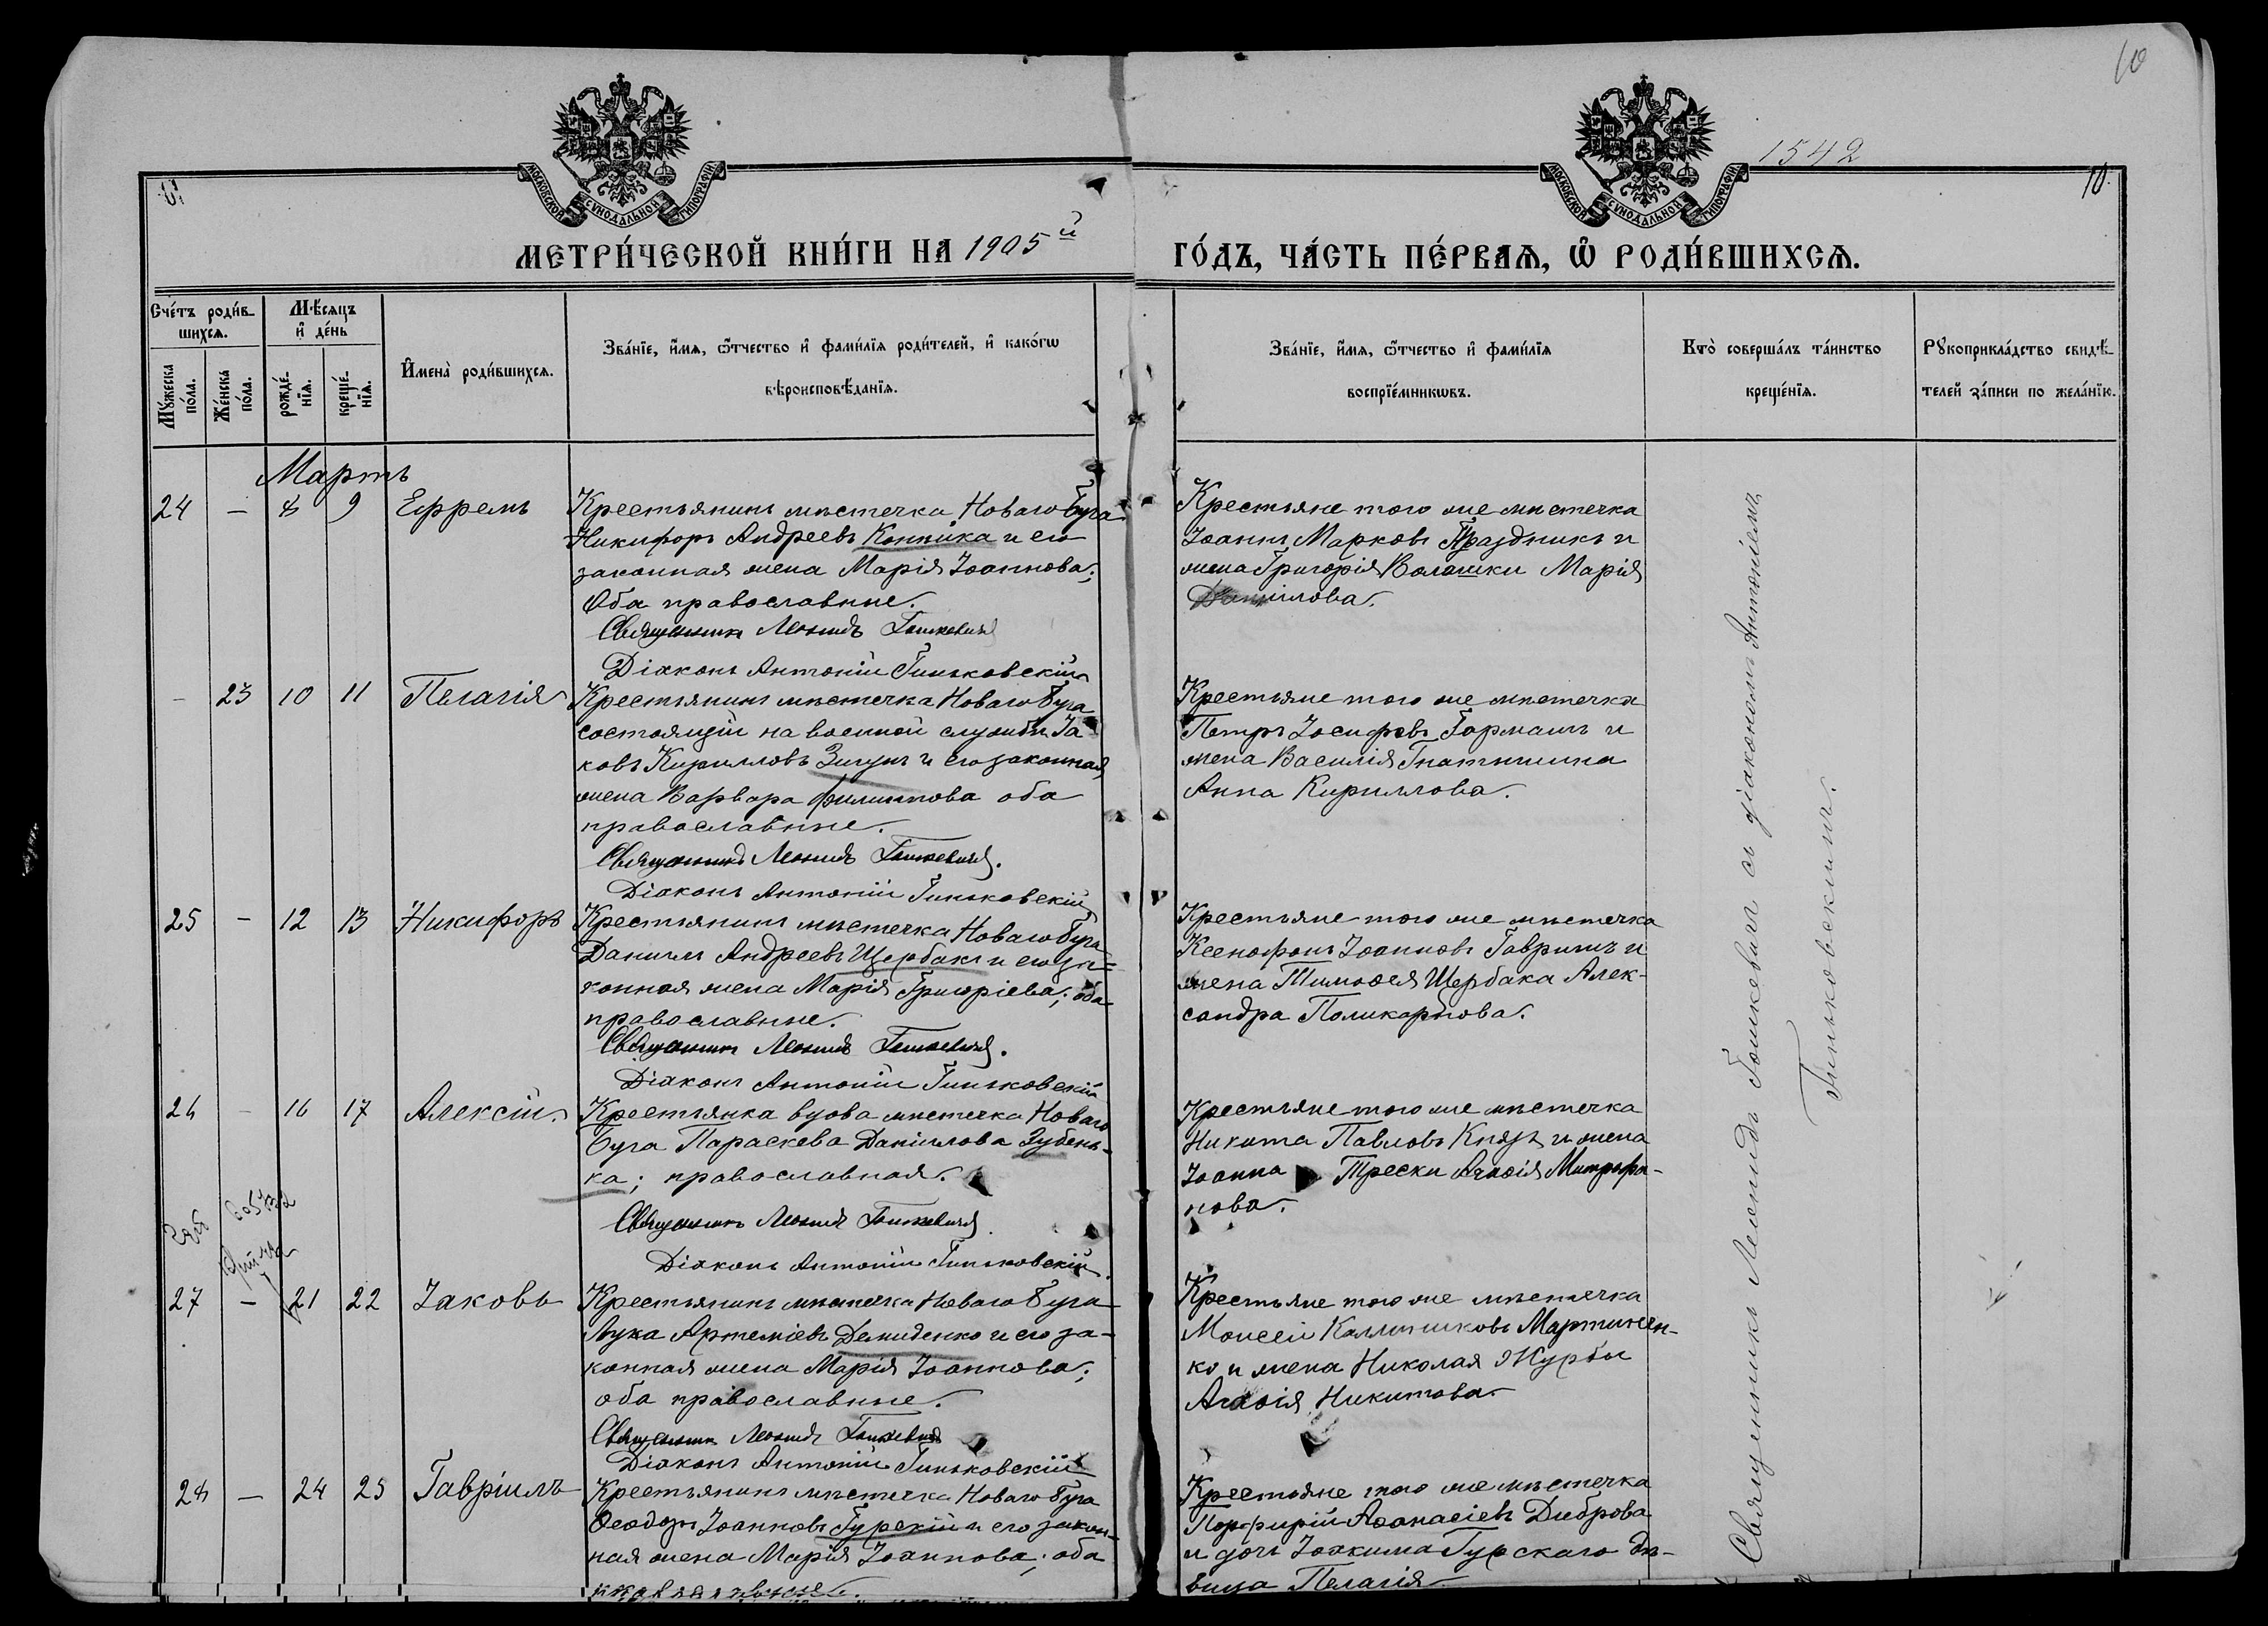 10
1542
10
МОСКОВСКОЙ СѴНОДАЛЬНОЙ ТИПОГРАФІИ
МОСКОВСКОЙ СѴНОДАЛЬНОЙ ТИПОГРАФІИ
МЕТРИ́ЧЕСКОЙ КНИ́ГИ НА 1905й ГО́ДЪ, ЧА́СТЬ ПЕ́РВАѦ, Ѡ҆ РОДИ́ВШИХСѦ.
Сче́тъ роди́в-
шихсѧ.
Мѣ́сѧцъ
и҆ де́нь
Мꙋ́жеска
по́ла.
Же́нска
по́ла.
рожде́-
нїѧ.
креще́-
нїѧ.
И҆мена̀ роди́вшихсѧ.
Зва́нїе, и҆́мѧ, ѻ҆́тчество и҆ фами́лїѧ роди́телей, и҆ како́гѡ
вѣроисповѣ́данїѧ.
Зва́нїе, и҆́мѧ, ѻ҆́тчество и҆ фами́лїѧ
воспрїе́мникѡвъ.
Кто̀ соверша́лъ та́инство
креще́нїѧ.
Рꙋкоприкла́дство свидѣ́-
телей за́писи по жела́нїю.
Мартъ
24 – 8 9 Ефремъ
Крестьянинъ мѣстечка Новаго Буга
Никифоръ Андреевъ Коппика и его
законная жена Марія Іоаннова;
Оба православные.
Священникъ Леонидъ
Діаконъ Антоній Гиньковскій
Крестьяне того же мѣстечка
Іоаннъ Марковъ Праздникъ и
жена Григорія Волошки Марія
Даніилова.
– 23 10 11 Пелагія
Крестьянинъ мѣстечка Новаго Буга
состоящій на военной службѣ Іа
ковъ Кирилловъ Зигунъ и его законная
жена Варвара Филиппова оба
православные.
Священникъ Леонидъ
Діаконъ Антоній Гиньковскій
Крестьяне того же мѣстечка
Петръ Іосифовъ Горманъ и
жена Василія Гнатишина
Анна Кириллова.
25 – 12 13 Никифоръ
Крестьянинъ мѣстечка Новаго Буга
Даніилъ Андреевъ Щербакъ и его за=
конная жена Марія Григоріева; оба
православные.
Священникъ Леонидъ
Діаконъ Антоній Гиньковскій
Крестьяне того же мѣстечка
Ксенофонъ Іоанновъ Гавришъ и
жена Тимоѳея Щербака Алек-
сандра Поликарпова.
26 – 16 17 Алексій
Крестьянка вдова мѣстечка Новаго
Буга Параскева Даніилова Зубень-
ка; православная.
Священникъ Леонидъ
Діаконъ Антоній Гиньковскій
Крестьяне того же мѣстечка
Никита Павловъ Князь и жена
Іоанна Трески Агаѳія Митрофа-
нова.
27 – 21 22 Іаковъ
Крестьянинъ мѣстечка Новаго Буга
Лука Артеміевъ Демиденко и его за-
конная жена Марія Іоаннова;
оба православные.
Священникъ Леонидъ
Діаконъ Антоній Гиньковскій
Крестьяне того же мѣстечка
Моисей Каллиниковъ Мартинен-
ко и жена Николая Журбы
Агаѳія Никитова
28 – 24 25 Гавріилъ
Крестьянинъ мѣстечка Новаго Буга
Ѳеодоръ Іоанновъ Гурскій и его закон-
ная жена Марія Іоаннова; оба
православные.
Крестьяне того же мѣстечка
Порфирій Аѳанасіевъ Диброва
и дочь Іоакима Гурскаго дѣ-
вица Пелагія
Священникъ Леонидъ съ діакономъ Антоніемъ
Гиньковскимъ.